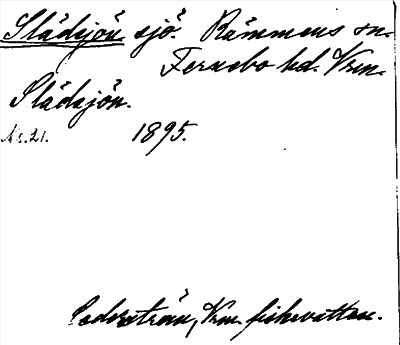 Slädsjön sjö. Rämmens sn.
Fernebo hd. Vrm.
Slädsjön.
N:o 21. 1895.
Cederström, Vrm. fiskevatten.